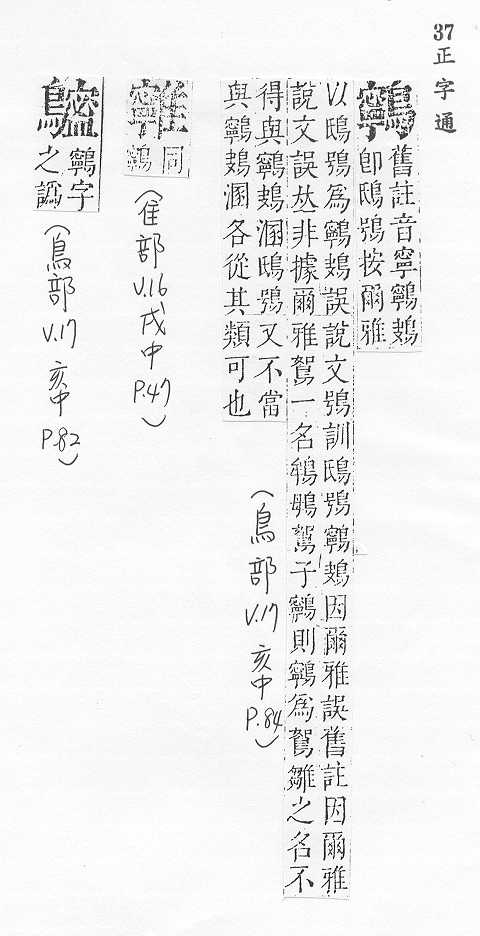 37 正字通
鸋
舊註音寧鸋鴂
卽鴟鴞按爾雅
以鴟鴞爲鸋鴂誤說文鴞訓鴟鴞鸋鴂因爾雅誤舊註因爾雅
說文誤𠀤非據爾雅鴽一名鴾䳇鴽子鸋則鸋爲鴽雛之名不
得與鸋鴂溷鴟鴞又不當
與鸋鴂溷各從其類可也
(鳥部 V.17 亥中 P.84)
同
鸋
(隹部 V.16 戌中 P.47)
鸋字
之譌
(鳥部 V.17 亥中 P.82)